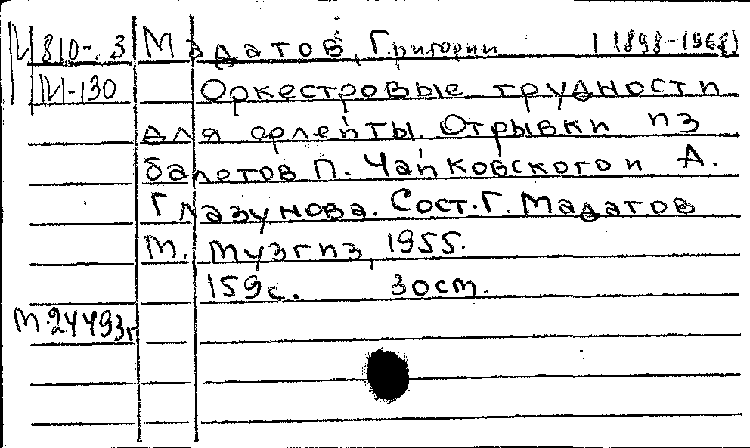 М810-.3 Мадатов, Григории (1898-1968)
М-130 Оркестровые трудности
для флейты. Отрывки из
балетов П. Чайковского и А.
Глазунова. Сост. Г. Мадатов
М. Музгиз, 1955.
159с. 30cm.
М24493г